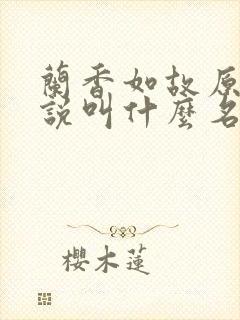 蘭香如故原
說叫什麼名
櫻木蓮